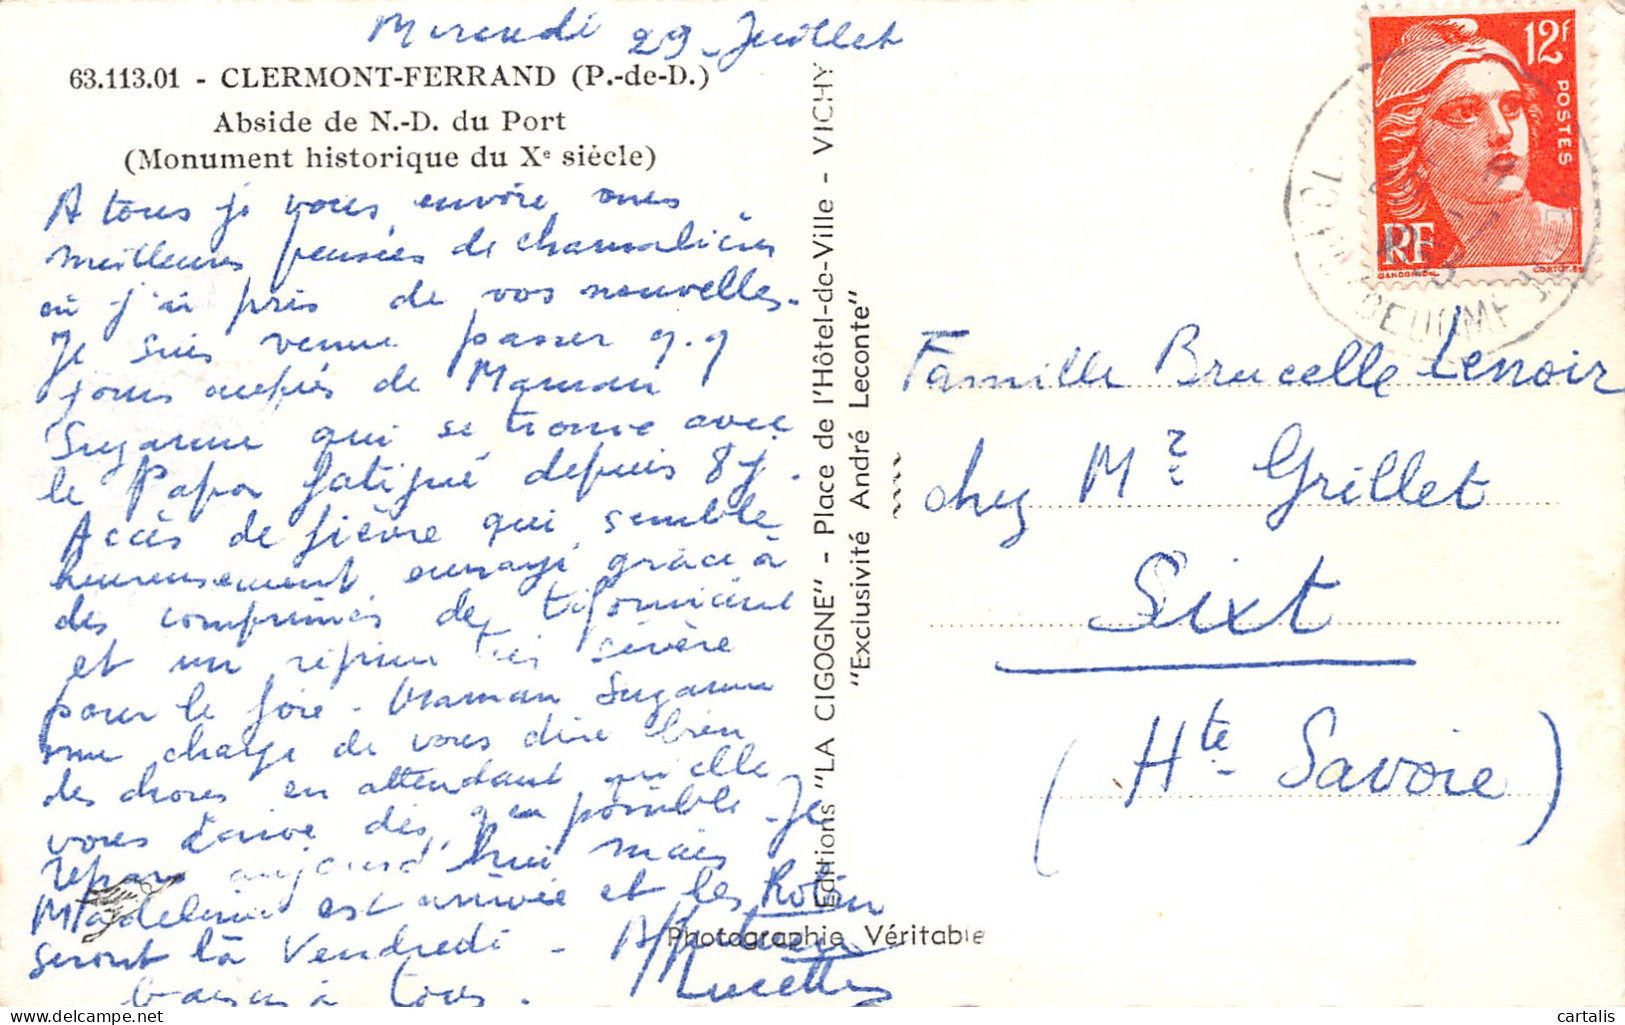 Mercredi 29 Juillet
63.113.01 - CLERMONT-FERRAND (P.-de-D.)
Abside de N.-D. du Port
(Monument historique du Xe siècle)
A tous je vous envoie mes
meilleures pensées de chamalières
où j'ai pris de vos nouvelles.
Je suis venue passer q.q
jours auprès de Maman
Suzanne qui se trouve avec
le Papa fatigué depuis 8 j.
Accès de fièvre qui semble
heureusement enrayé grâce à
des comprimés de
et un régime très sévère
pour le foie - Maman Suzanne
me charge de vous dire bien
des choses en attendant qu'elle
vous écrive dès que possible - Je
repars aujourd'hui mais
Madeleine est arrivée et les Robin
seront là Vendredi - Affectueux
baisers à tous.
Lucette
Editions "LA CIGOGNE" - Place de l'Hôtel-de-Ville - VICHY
"Exclusivité André Leconte"
Photographie Véritable
12F
POSTES
RF
GANDON
CORTOT
Famille Brucelle Lenoir
chez Mr Grillet
Sixt
(Hte - Savoie)
cartalis